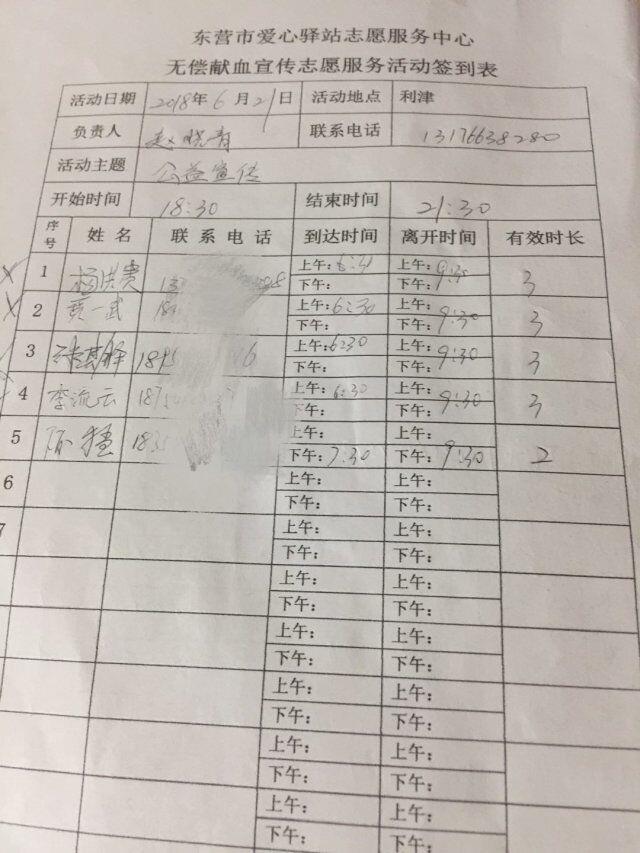 东营市爱心驿站志愿服务中心
无偿献血宣传志愿服务活动签到表
活动日期 2018年6月21日 活动地点 利津
负责人 赵晓青 联系电话 13176638280
活动主题 公益宣传
开始时间 18:30 结束时间 21:30
序号 姓名 联系电话 到达时间 离开时间 有效时长
1 杨洪贵 上午: 上午: 9:30 3
下午: 下午:
2 贾一武 上午:6:30 上午: 9:30 3
下午: 下午:
3 上午:6:30 上午: 9:30 3
下午: 下午:
4 李流云 上午:6:30 上午: 9:30 3
下午: 下午:
5 上午: 上午:
下午:7:30 下午:9:30 2
6 上午: 上午:
下午: 下午:
7 上午: 上午:
下午: 下午:
上午: 上午:
下午: 下午:
上午: 上午:
下午: 下午:
上午: 上午:
下午: 下午:
上午: 上午:
下午: 下午:
上午: 上午:
下午: 下午: